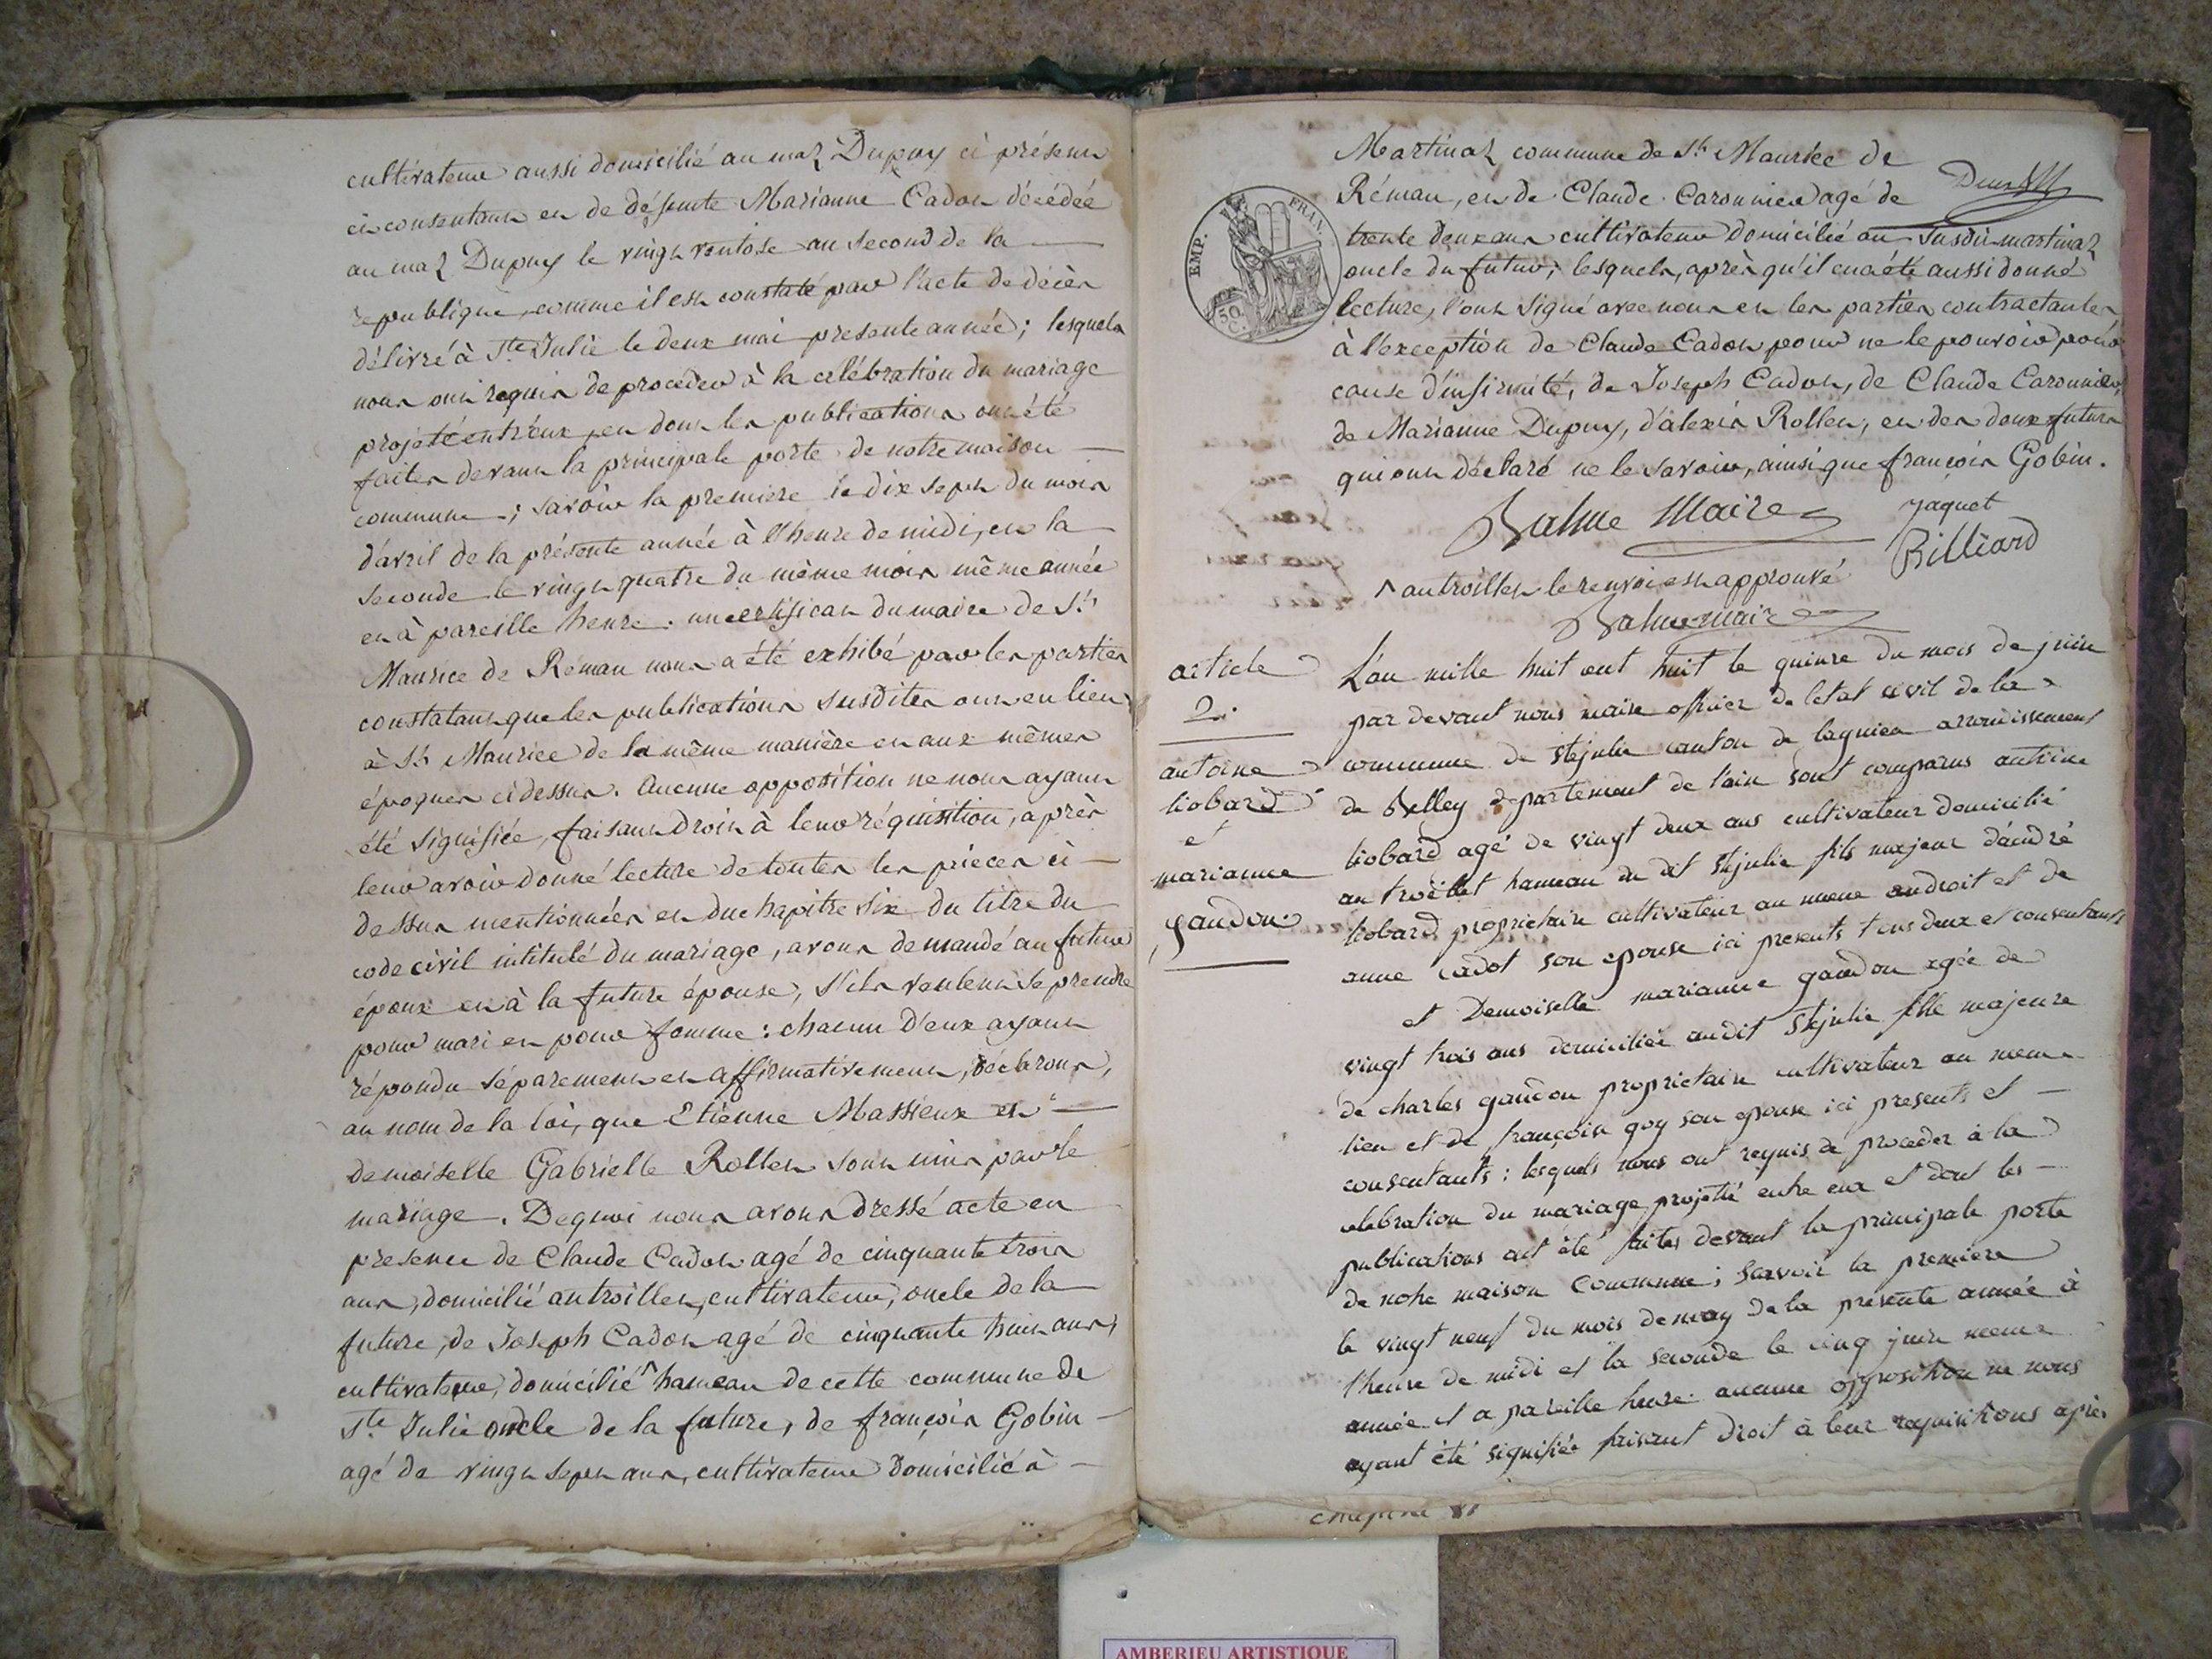 cultivateur aussi domicilié au maz Dupuy ci présent
et consentant et de défunte Marianne Cadot décédée
au maz Dupuy le vingt ventose an second de la
republique, comme il est constaté par l'acte de décès
délivré à Ste Julie le deux mai presente année; lesquels
nous ont requis de proceder à la célébration du mariage
projeté entr'eux, et dont les publications ont été
faites devant la principale porte de notre maison
commune; savoir la premiere le dix sept du mois
d'avril de la présente année à l'heure de midi, et la
seconde le vingt quatre du même mois même année
et à pareille heure. un certificat du maire de St
Maurice de Réman nous a été exhibé par les parties
constatant que les publications susdites ont eu lieu
à St Maurice de la même manière et aux mêmes
époques ci dessus. Aucune opposition ne nous ayant
été signifiée, faisant droit à leur réquisition, après
leur avoir donné lecture de toutes les pièces ci
dessus mentionnées et du chapitre six du titre du
code civil intitulé du mariage, avons demandé au futur
époux et à la future épouse, s'ils veulent se prendre
pour mari et pour femme: chacun d'eux ayant
répondu séparement et affirmativement, déclarons,
au nom de la loi, que Etienne Massieux et
demoiselle Gabrielle Rollet sont unis par le
mariage. De quoi nous avons dressé acte en
presence de Claude Cadot agé de cinquante trois
ans, domicilié au troillet, cultivateur, oncle de la
future, de Joseph Cadot agé de cinquante huit ans,
cultivateur, domicilié ^ hameau de cette commune de
Ste Julie oncle de la future, de françois Gobin
agé de vingt sept ans, cultivateur domicilié à
Martinaz commune de St Maurice de
Réman, et de Claude Caronnier agé de
trente deux ans cultivateur domicilié au susdit martinaz
oncle du futur; lesquels, après qu'il en a été aussi donné
lecture, l'ont signé avec nous et les parties contractantes
à l'exception de Claude Cadot pour ne le pouvoir pour
cause d'infirmité, de Joseph Cadot, de Claude Caronnier,
de Marianne Dupuy, d'alexis Rollet, et des deux futurs
qui ont déclaré ne le savoir, ainsi que françois Gobin.
EMP. FRAN.
50 C.
Balme Maire
Jaquet
Billiard
^ au troillet le renvoi est approuvé
Balme maire
article
2.
antoine
liobard
et
marianne
gandon
L'an mille huit cent huit le quinze du mois de juin
par devant nous maire officier de l'etat civil de la
commune de Ste julie canton de lagnieu arrondissement
de Belley departement de l'ain sont comparus antoine
liobard agé de vingt deux ans cultivateur domicilié
au troëllet hameau du dit Ste julie fils majeur d'andré
liobard proprietaire cultivateur au meme endroit et de
anne cadot son epouse ici presents tous deux et consentants
et Demoiselle marianne gandon agée de
vingt trois ans domiciliée audit Ste julie fille majeure
de charles gandon proprietaire cultivateur au meme
lieu et de françoise goy son epouse ici presents et
consentants: lesquels nous ont requis de proceder à la
celebration du mariage projetté entre eux et dont les
publications ont été faites devant la principale porte
de notre maison commune; savoir la premiere
le vingt neuf du mois de may de la presente année à
l'heure de midi et la seconde le cinq juin meme
année et a pareille heure. aucune opposition ne nous
ayant été signifiée faisant droit à leur requisitions après
AMBERIEU ARTISTIQUE